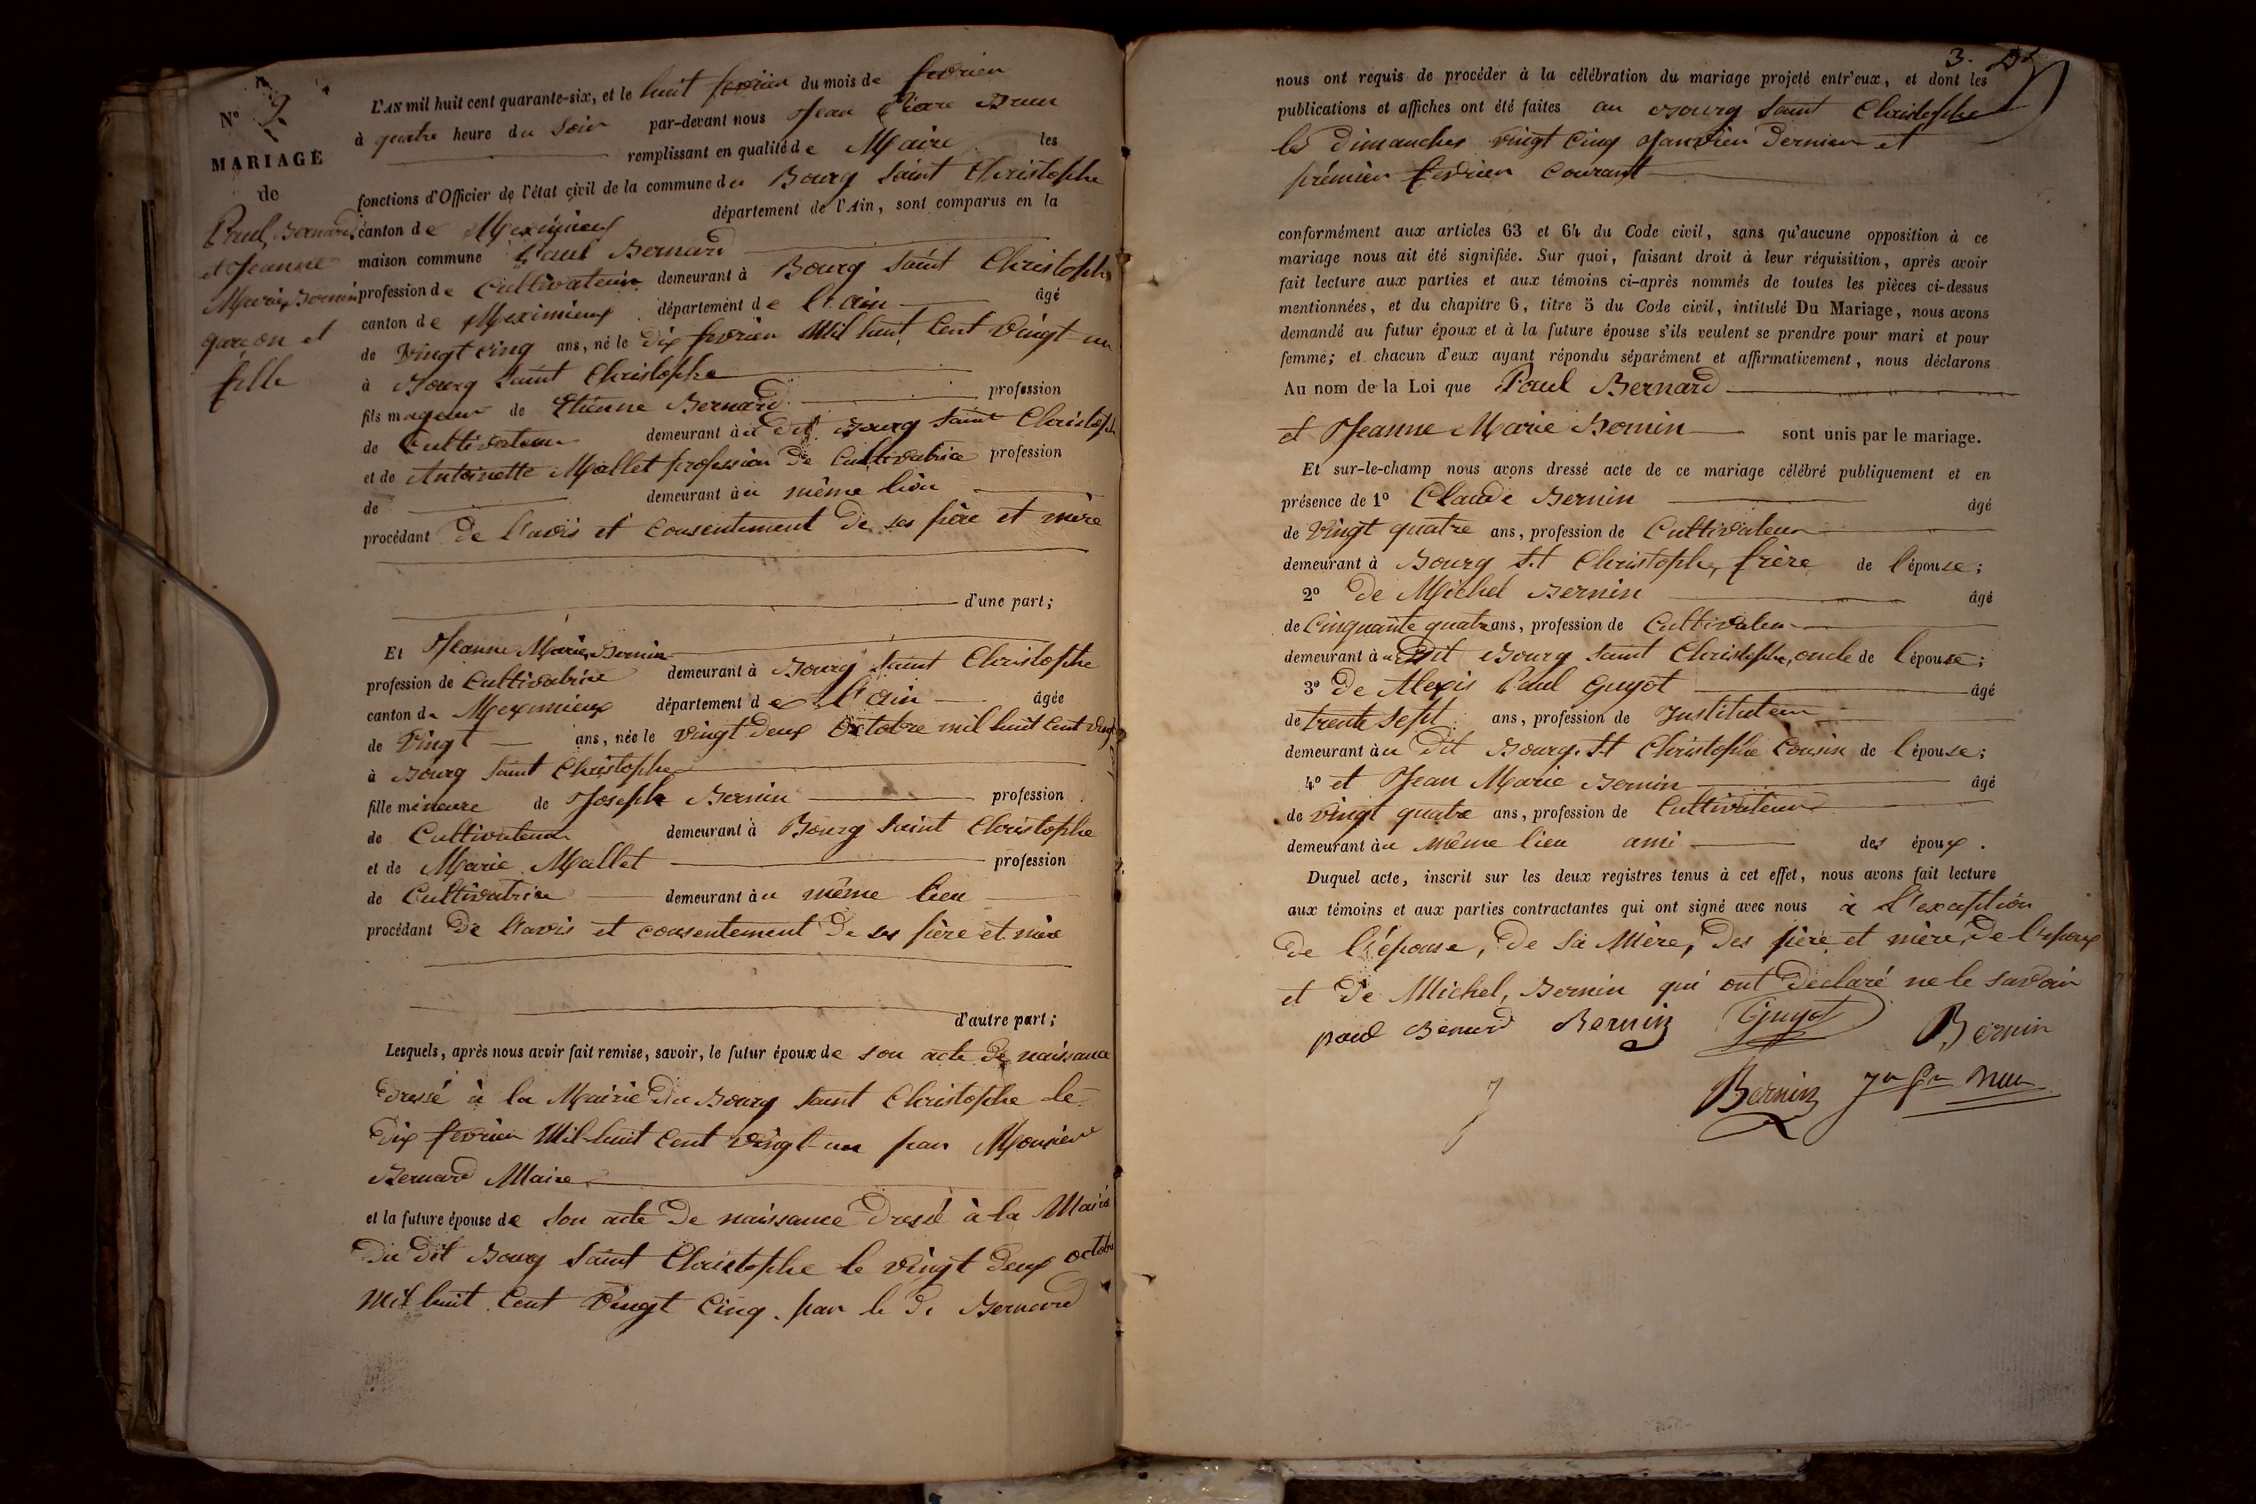 Nº 2
MARIAGE
de
Paul Bernard
et Jeanne
Marie Bernin
garçon et
fille
L'AN mil huit cent quarante-six, et le huit fevrier du mois de fevrier
à quatre heure du Soir par-devant nous Jean Pierre Brun
remplissant en qualité de Maire les
fonctions d'Officier de l'état civil de la commune du Bourg Saint Christophe
canton de Meximieux département de l'Ain, sont comparus en la
maison commune Paul Bernard
profession de Cultivateur demeurant à Bourg Saint Christophe
canton de Meximieux département de l'ain âgé
de Vingt cinq ans, né le dix fevrier Mil huit Cent Vingt un
à Bourg Saint Christophe
fils majeur de Etienne Bernard profession
de Cultivateur demeurant au dit Bourg Saint Christoph
et de Antoinette Mallet profession de Cultivatrice profession
de demeurant au même lieu
procédant de l'avis et consentement de ses père et mère
d'une part;
Et Jeanne Marie Bernin
profession de Cultivatrice demeurant à Bourg Saint Christophe
canton de Meximieux département de l'ain âgée
de Vingt ans, née le vingt deux Octobre mil huit Cent Vingt
à Bourg Saint Christophe
fille mineure de Joseph Bernin profession
de Cultivateur demeurant à Bourg Saint Christophe
et de Marie Mallet profession
de Cultivatrice demeurant au même lieu
procédant de l'avis et consentement de ses père et mère
d'autre part;
Lesquels, après nous avoir fait remise, savoir, le futur époux de son acte de naissance
dressé à la Mairie du Bourg Saint Christophe le
dix fevrier Mil huit Cent vingt un par Monsieur
Bernard Maire
et la future épouse de son acte de naissance dressé à la Mairie
du dit Bourg Saint Christophe le vingt deux octobre
Mil huit Cent Vingt Cinq par le dt Bernard
3.
nous ont requis de procéder à la célébration du mariage projeté entr'eux, et dont les
publications et affiches ont été faites au Bourg Saint Christophe
les dimanches vingt cinq Janvier dernier et
prémier fevrier courant
conformément aux articles 63 et 64 du Code civil, sans qu'aucune opposition à ce
mariage nous ait été signifiée. Sur quoi, faisant droit à leur réquisition, après avoir
fait lecture aux parties et aux témoins ci-après nommés de toutes les pièces ci-dessus
mentionnées, et du chapitre 6, titre 5 du Code civil, intitulé Du Mariage, nous avons
demandé au futur époux et à la future épouse s'ils veulent se prendre pour mari et pour
femme; et chacun d'eux ayant répondu séparément et affirmativement, nous déclarons
Au nom de la Loi que Paul Bernard
et Jeanne Marie Bernin sont unis par le mariage.
Et sur-le-champ nous avons dressé acte de ce mariage célébré publiquement et en
présence de 1º Claude Bernin âgé
de Vingt quatre ans, profession de Cultivateur
demeurant à Bourg St Christophe, frère de l'épouse;
2º de Michel Bernin âgé
de Cinquante quatre ans, profession de Cultivateur
demeurant au dit Bourg Saint Christophe, oncle de l'épouse;
3º de Alexis Paul Guyot âgé
de trente Sept ans, profession de Instituteur
demeurant au dit Bourg St Christophe Cousin de l'épouse;
4º et Jean Marie Bernin âgé
de vingt quatre ans, profession de Cultivateur
demeurant au même lieu ami des époux.
Duquel acte, inscrit sur les deux registres tenus à cet effet, nous avons fait lecture
aux témoins et aux parties contractantes qui ont signé avec nous à l'exception
de l'épouse, de sa Mère, des père et mère de l'époux
et de Michel, Bernin qui ont déclaré ne le savoir
paul Bernard Bernin Guyot Bernin
Bernin Jn Pre Brun